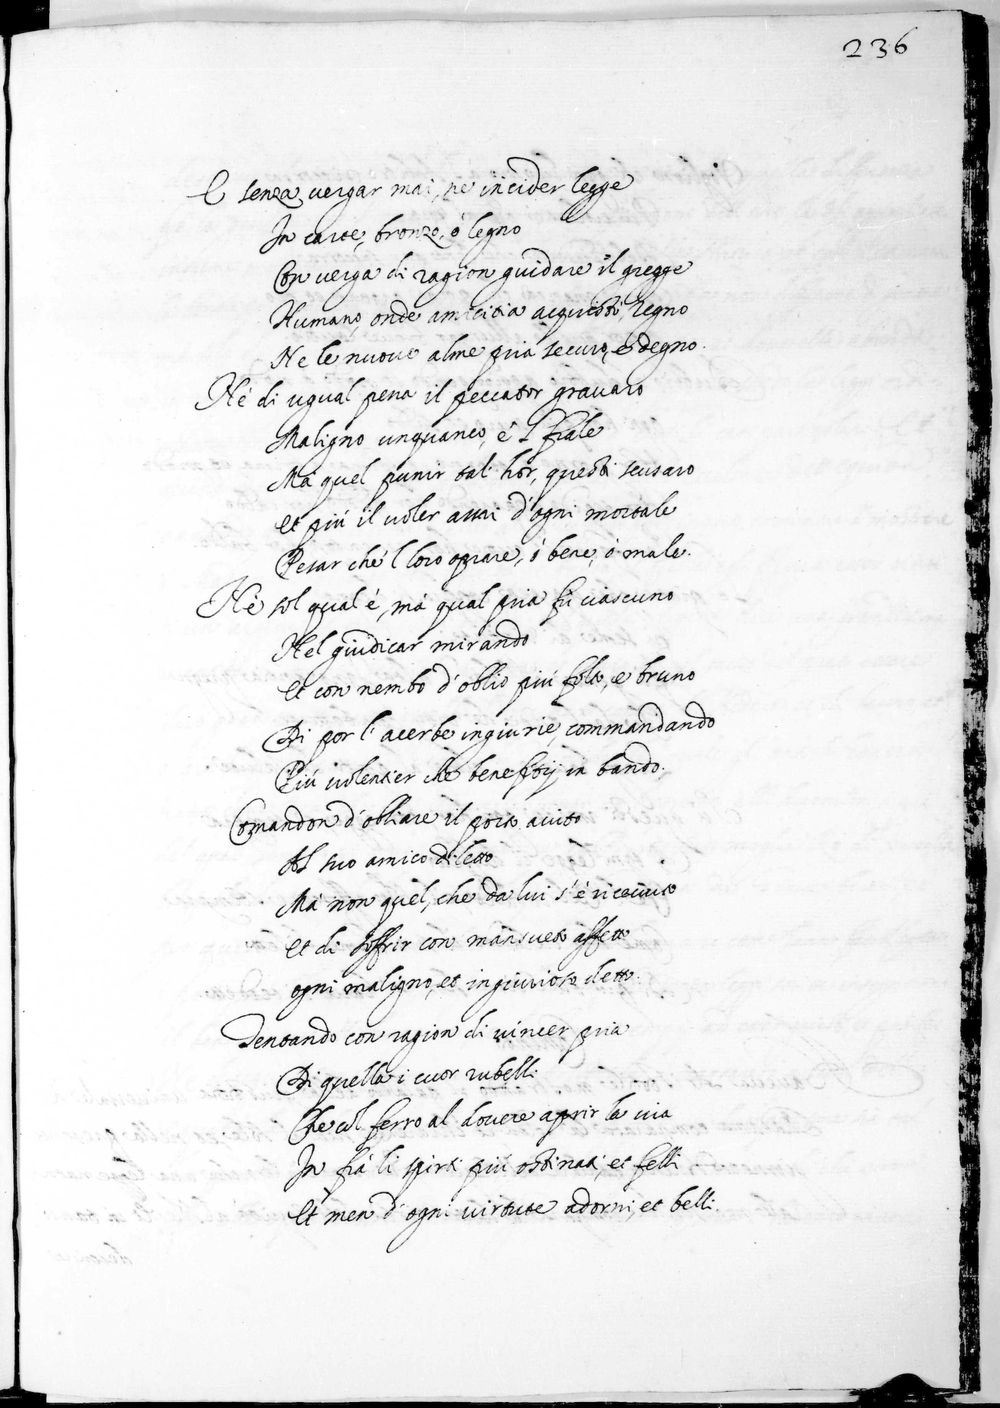 236
E senza vergar mai, ne incider legge
In carte, bronzo, ó legno
Con verga di ragion guidare il gregge
Humano, onde amicitia acquisti regno
Ne le nuove alme pria securo, é degno.
Né di ugual pena il peccator gravaro
Maligno unquanco, é 'l frale
Má quel punir tal' hor, questi scusaro
Et piú il voler assai d'ogni mortale
Pesar ché 'l loro oprare, ó bene, ó male.
Né sol qual é, má qual pria fú ciascuno
Nel giudicar mirando
Et con nembo d'oblio piú folto, é bruno
Di por l'acerbe ingiurie, commandando
Piú volentier che beneficij in bando.
Comandon d'obliare il porto aiuto
Al suo amico diletto
Má non quel, che da lui s'é ricevuto
Et di soffrir con mansueto affetto
ogni maligno, et ingiurioso detto.
Tentando con ragion di vincer pria
Di quella i cuor rubelli
Che col ferro al dovere aprir la via
In frá li spirti piú ostinati, et felli
Et men d'ogni virtute adorni, et belli.